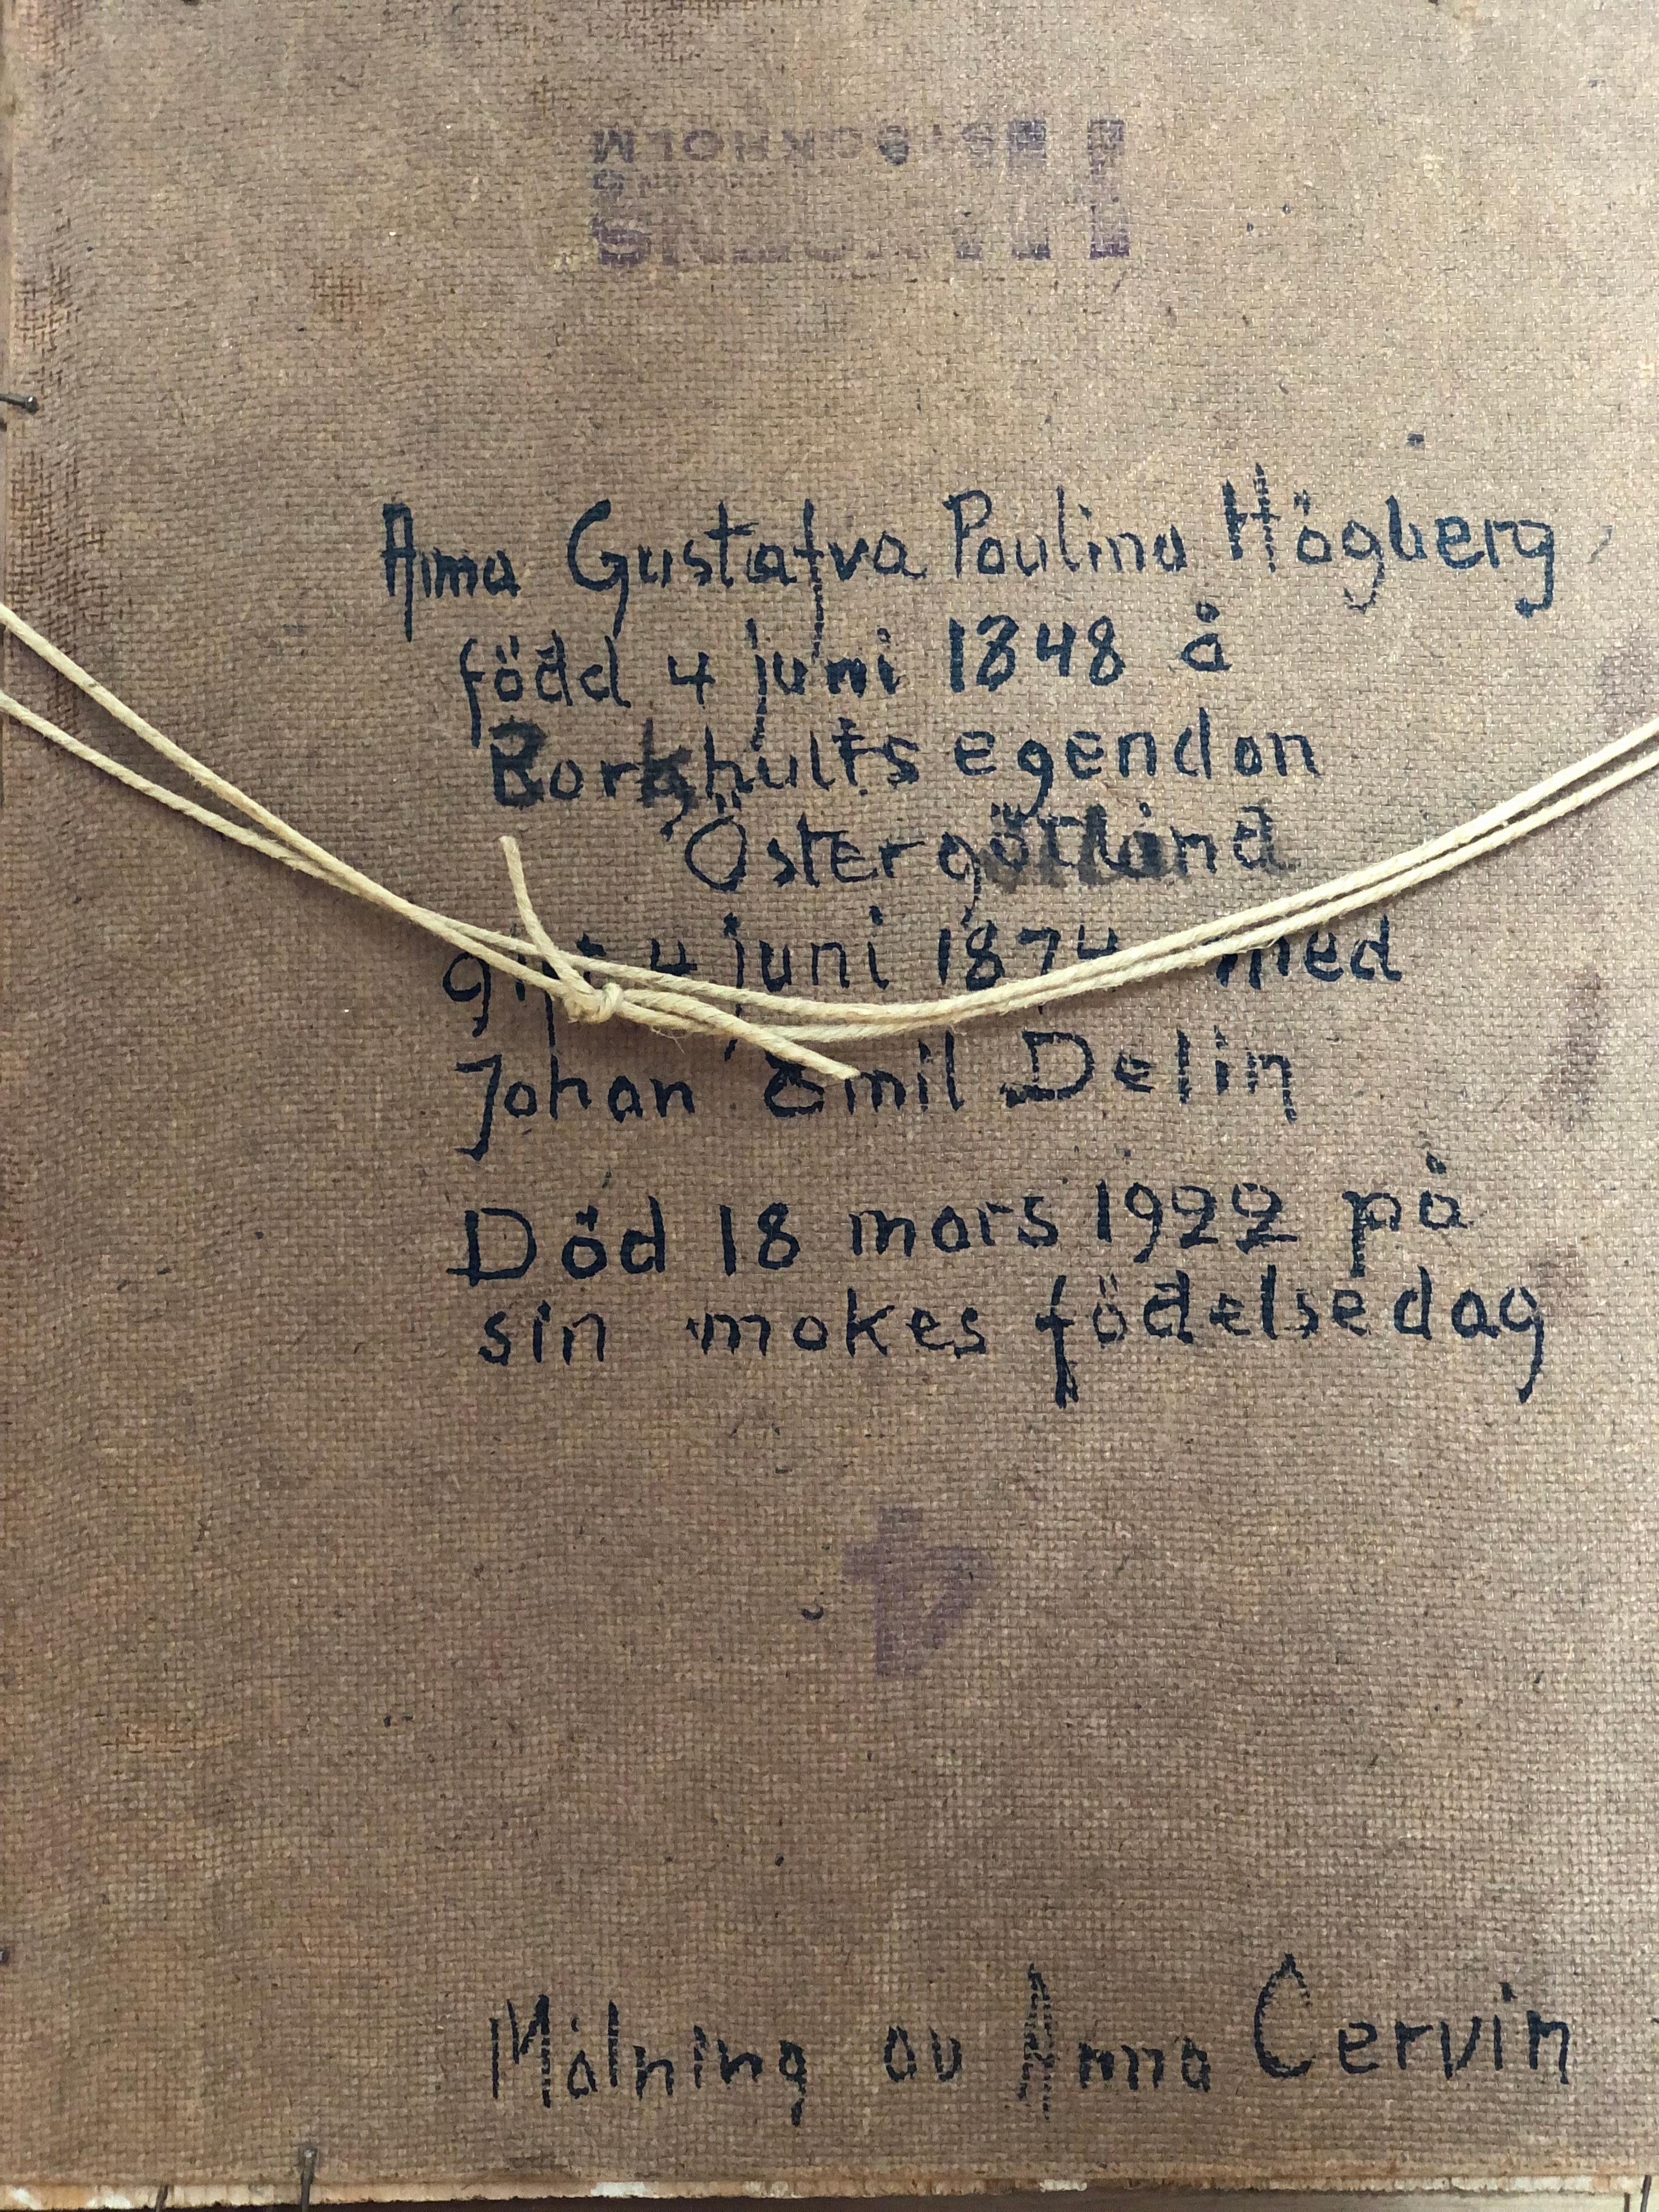 STOCKHOLM
Anna Gustafva Paulina Högberg
född 4 juni 1848 å
Borkhults egendon
Östergötland
gift 4 juni 1874 med
Johan Emil Delin
Död 18 mars 1922 på
sin makes födelsedag
4
Målning av Anna Cervin